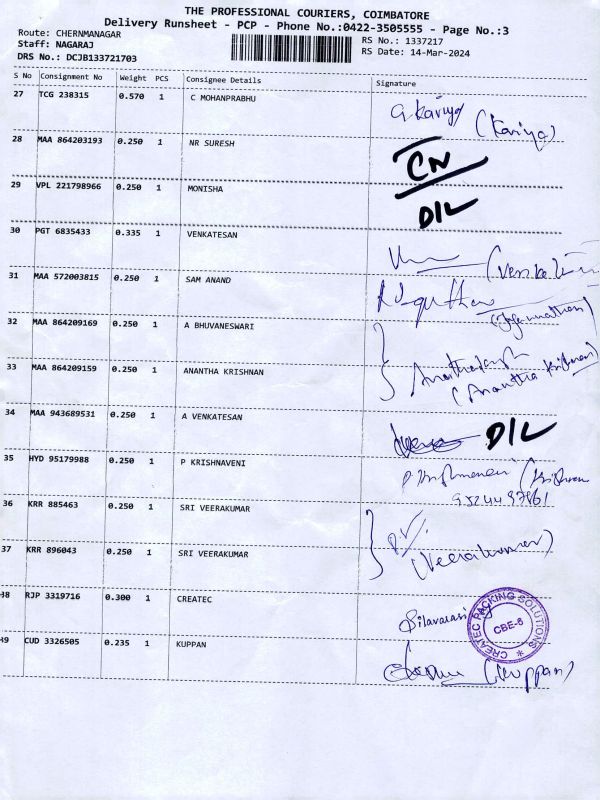 THE PROFESSIONAL COURIERS, COIMBATORE
Delivery Runsheet - PCP - Phone No.:0422-3505555 - Page No.:3
Route: CHERNMANAGAR
RS No.: 1337217
Staff: NAGARAJ
RS Date: 14-Mar-2024
DRS No.: DCJB133721703
S No Consignment No Weight PCS Consignee Details Signature
27 TCG 238315 0.570 1 C MOHANPRABHU
G. Kaviya (Kaviya)
28 MAA 864203193 0.250 1 NR SURESH
CN
29 VPL 221798966 0.250 1 MONISHA
D/L
30 PGT 6835433 0.335 1 VENKATESAN
31 MAA 572003815 0.250 1 SAM ANAND
(Jagannathan)
32 MAA 864209169 0.250 1 A BHUVANESWARI
33 MAA 864209159 0.250 1 ANANTHA KRISHNAN
(Anantha Krishnan)
34 MAA 943689531 0.250 1 A VENKATESAN
D/L
35 HYD 95179988 0.250 1 P KRISHNAVENI
36 KRR 885463 0.250 1 SRI VEERAKUMAR
37 KRR 896043 0.250 1 SRI VEERAKUMAR
(Veerakumar)
38 RJP 3319716 0.300 1 CREATEC
Silavarasi
CREATEC PACKING SOLUTIONS
CBE-6
39 CUD 3326505 0.235 1 KUPPAN
(Kuppan)